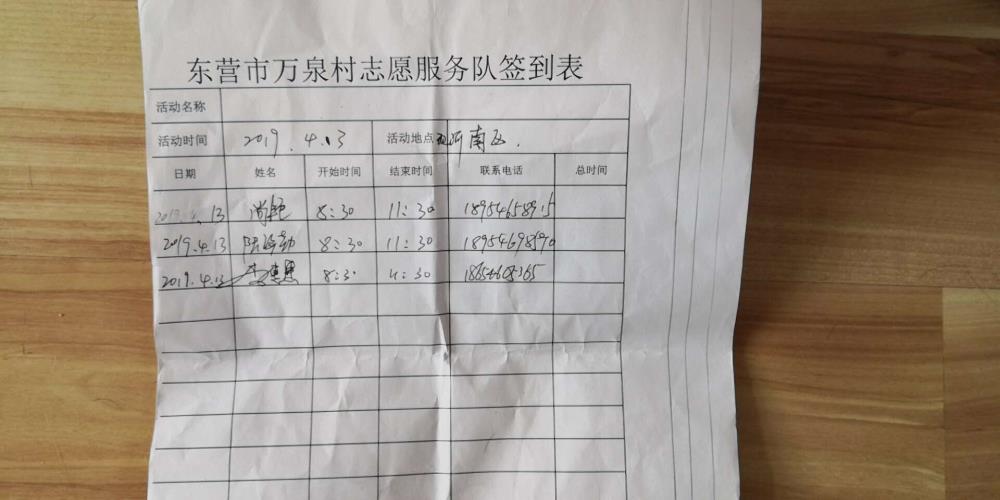 东营市万泉村志愿服务队签到表
活动名称
活动时间 2019.4.13 活动地点 河南区.
日期 姓名 开始时间 结束时间 联系电话 总时间
2019.4.13 尚艳 8:30 11:30
2019.4.13 8:30 11:30
2019.4.13 8:30 11:30